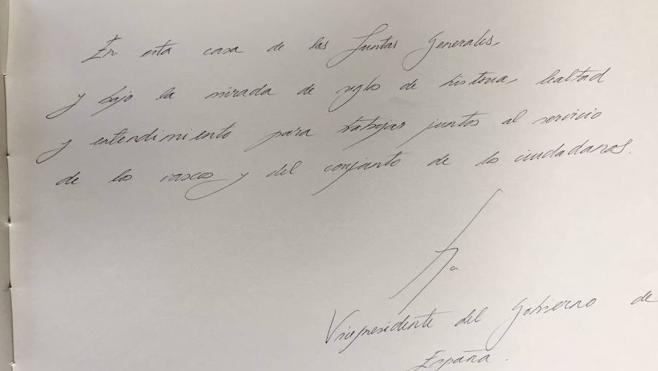 En esta casa de las Juntas Generales,
y bajo la mirada de siglos de historia, lealtad
y entendimiento para trabajar juntos al servicio
de los vascos y del conjunto de los ciudadanos.
Vicepresidente del Gobierno de
España.